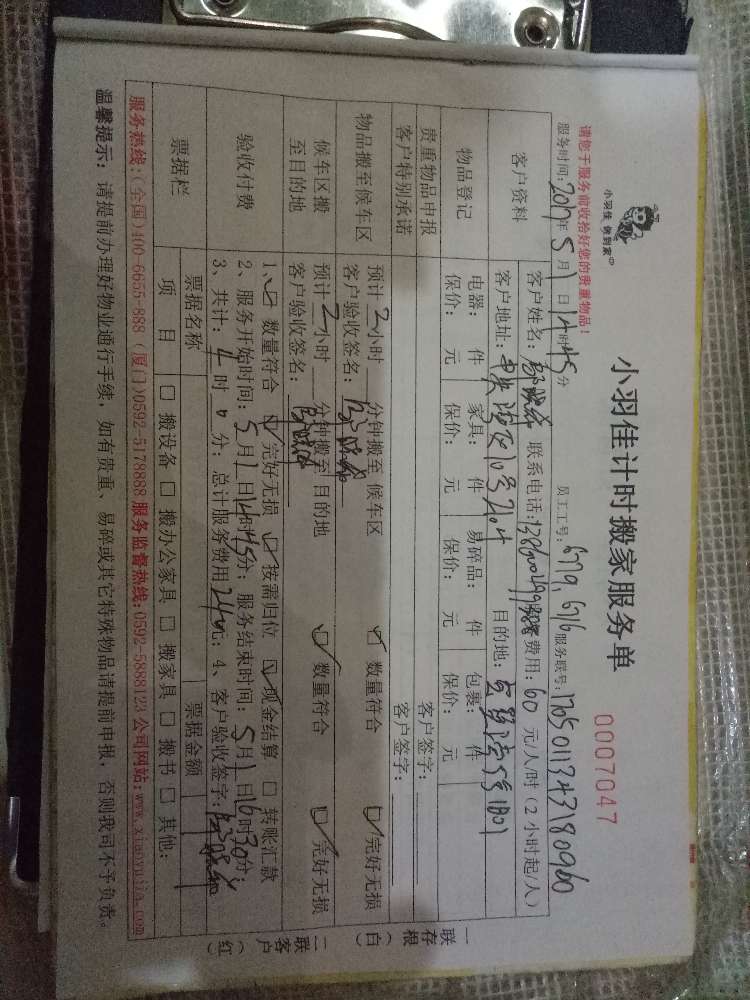 小羽佳 做到家
小羽佳计时搬家服务单
0007047
请您于服务前收拾好您的贵重物品！
服务时间：2017年5月1日14时45分 员工工号：679,676 服务联号：
客户资料 客户姓名： 联系电话： 费用：60元/人/时（2小时起/人）
客户地址： 目的地：
物品登记 电器： 件 家具： 件 易碎品： 件 包裹： 件
保价： 元 保价： 元 保价： 元 保价： 元
贵重物品申报 客户签字：
客户特别承诺 客户签字：
物品搬至候车区 预计2小时 分钟搬至 候车区 ☑ 数量符合 ☑ 完好无损
客户验收签名：
候车区搬至目的地 预计2小时 分钟搬至 目的地 ☑ 数量符合 ☑ 完好无损
客户验收签名：
验收付费 1、☑ 数量符合 ☑ 完好无损 ☑ 按需归位 ☑ 现金结算 □ 转账汇款
2、服务开始时间：5月1日14时45分；服务结束时间：5月1日16时30分；
3、共计：4时0分；总计服务费用240元；4、客户验收签字：
票据栏 票据名称 票据金额
项 目 □ 搬设备 □ 搬办公家具 □ 搬家具 □ 搬书 □ 其他：
服务热线：(全国)400-6655-888 (厦门)0592-5178888 服务监督热线：0592-5888123 公司网站：www.xiaoyujia.com
温馨提示：请提前办理好物业通行手续，如有贵重、易碎或其它特殊物品请提前申报，否则我司不予负责。
一联存根（白）
二联客户（红）